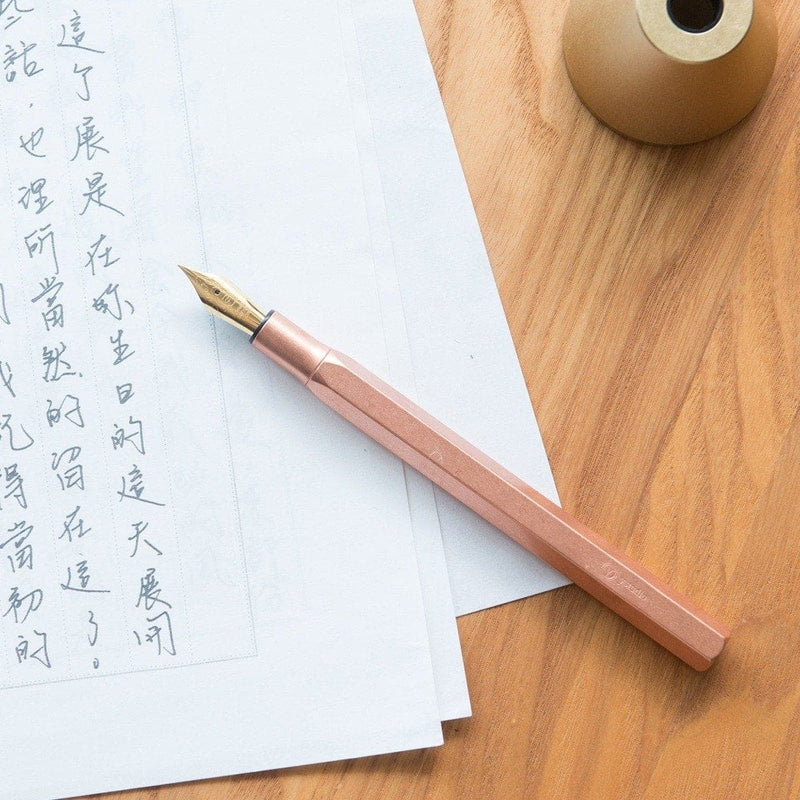 這个展是在妳生日的這天展開
話，也理所當然的留在這了。
得當初的
ystudio